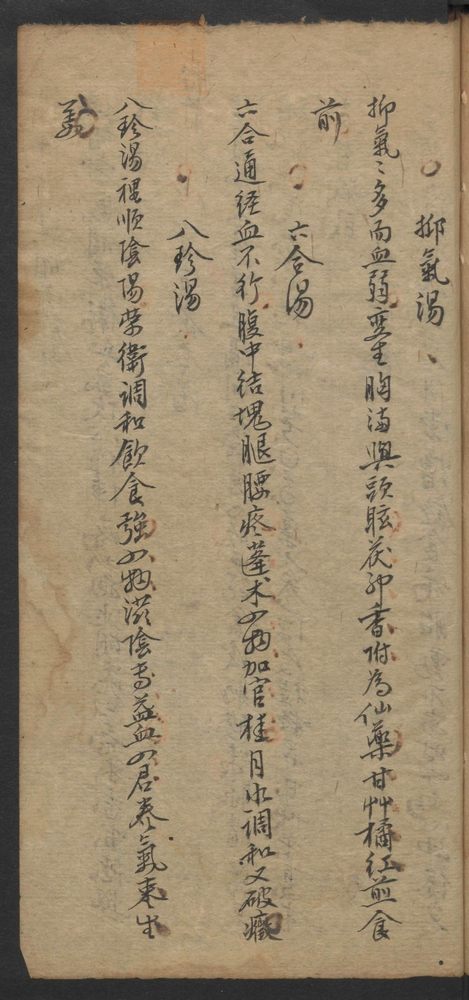 抑氣湯
抑氣〻多而血弱變生胸滿與頭眩茯神香附為仙藥甘艸橘紅煎食
前
六合湯
六合通経血不行腹中結塊腿腰疼蓬术四物加官桂月水調和又破癥
八珍湯
八珍湯理順陰陽荣衛調和飲食強四物滋陰專益血四君养氣棗生
姜